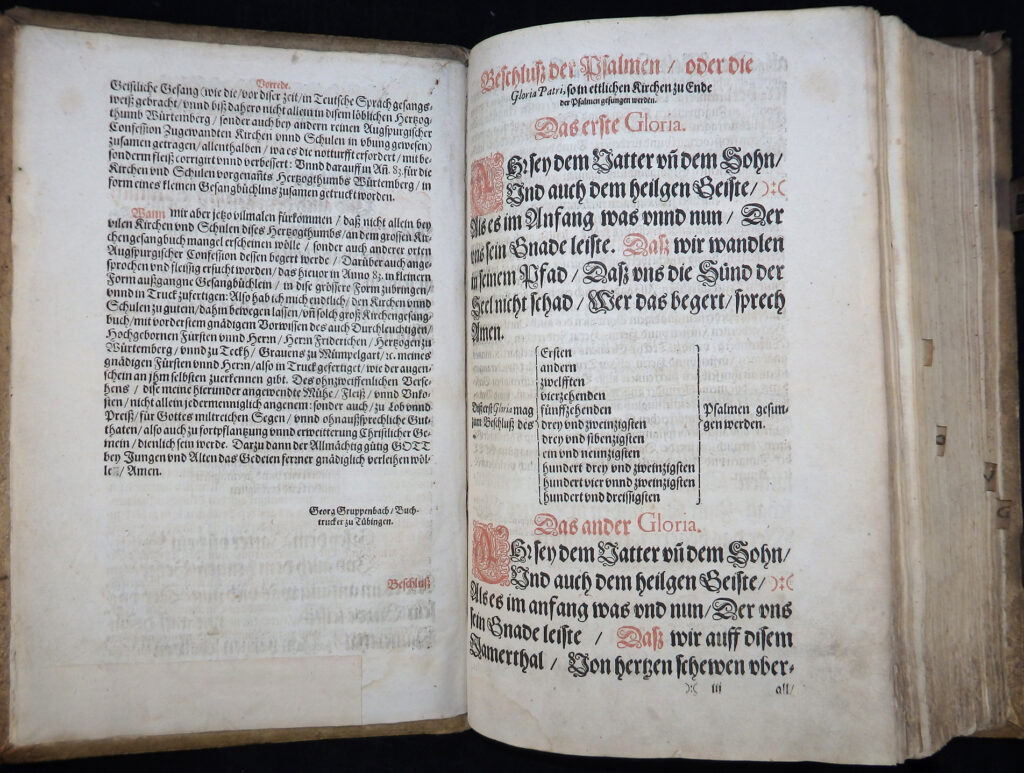 Vorrede.
Geistliche Gesang/wie die/vor diser zeit/in Teutsche Sprach gesangs,
weiß gebracht/vnnd biß dahero nicht allein in disem löblichen Hertzog,
thumb Würtemberg/sonder auch bey andern reinen Augspurgischer
Confession Zugewandten Kirchen vnnd Schulen in vbung gewesen)
zusamen getragen/allenthalben/wa es die notturfft erfordert/mit be,
sonderm fleiß corrigirt vnnd verbessert: Vnnd darauff in Añ. 83. für die
Kirchen vnd Schulen vorgenañts Hertzogthumbs Würtemberg/in
form eines kleinen Gesangbüchlins zusamen getruckt worden.
Wann mir aber jetzo vilmalen fürkommen/daß nicht allein bey
vilen Kirchen vnd Schulen dises Hertzogthumbs/an dem grossen Kir,
chengesangbuch mangel erscheinen wölle/sonder auch anderer orten
Augspurgischer Confession dessen begert werde/Darüber auch ange,
sprochen vnd fleissig ersucht worden/das hieuor in Anno 83. in kleinern
Form außgangne Gesangbüchlein/in dise grössere Form zubringen/
vnnd in Truck zufertigen: Also hab ich mich endtlich/den Kirchen vnnd
Schulen zu gutem/dahin bewegen lassen/vñ solch groß Kirchengesang,
buch/mit vorderstem gnädigem Vorwissen des auch Durchleuchtigen/
Hochgebornen Fürsten vnnd Herrn/Herrn Friderichen/Hertzogen zu
Würtemberg/vnnd zu Teckh/Grauens zu Mümpelgart/ꝛc. meines
gnädigen Fürsten vnnd Herrn/also in Truck gefertiget/wie der augen,
schein an jhm selbsten zuerkennen gibt. Des ohnzweiffenlichen Verse,
hens/dise meine hierunder angewendte Mühe/Fleiß/vnnd Vnko,
sten/nicht allein jedermenniglich angenem: sonder auch/zu Lob vnnd
Preiß/für Gottes miltreichen Segen/vnnd ohnaußsprechliche Gut,
thaten/also auch zu fortpflantzung vnnd erweitterung Christlicher Ge,
mein/dienlich sein werde. Darzu dann der Allmächtig gütig GOTT
bey Jungen vnd Alten das Gedeien ferrner gnädiglich verleihen wöl,
le/Amen.
Georg Gruppenbach/Buch-
trucker zu Tübingen.
Beschluß
Beschluß der Psalmen/oder die
Gloria Patri, so in ettlichen Kirchen zu Ende
der Psalmen gesungen werden.
Das erste Gloria.
EHr sey dem Vatter vñ dem Sohn/
Vnd auch dem heilgen Geiste/
Als es im Anfang was vnnd nun/Der
vns sein Gnade leiste. Daß wir wandlen
in seinem Pfad/Daß vns die Sünd der
Seel nicht schad/Wer das begert/sprech
Amen.
Diß erst Gloria mag
zum Beschluß des
Ersten
andern
zwelfften
vierzehenden
fünffzehenden
drey vnd zweinzigsten
drey vnd sibenzigsten
ein vnd neunzigsten
hundert drey vnd zweinzigsten
hundert vier vnnd zweinzigsten
hundert vnd dreissigsten
Psalmen gesun-
gen werden.
Das ander Gloria.
EHr sey dem Vatter vñ dem Sohn/
Vnd auch dem heilgen Geiste/
Als es im anfang was vnd nun/Der vns
sein Gnade leiste / Daß wir auff disem
Jamerthal / Von hertzen schewen vber-
iii all/